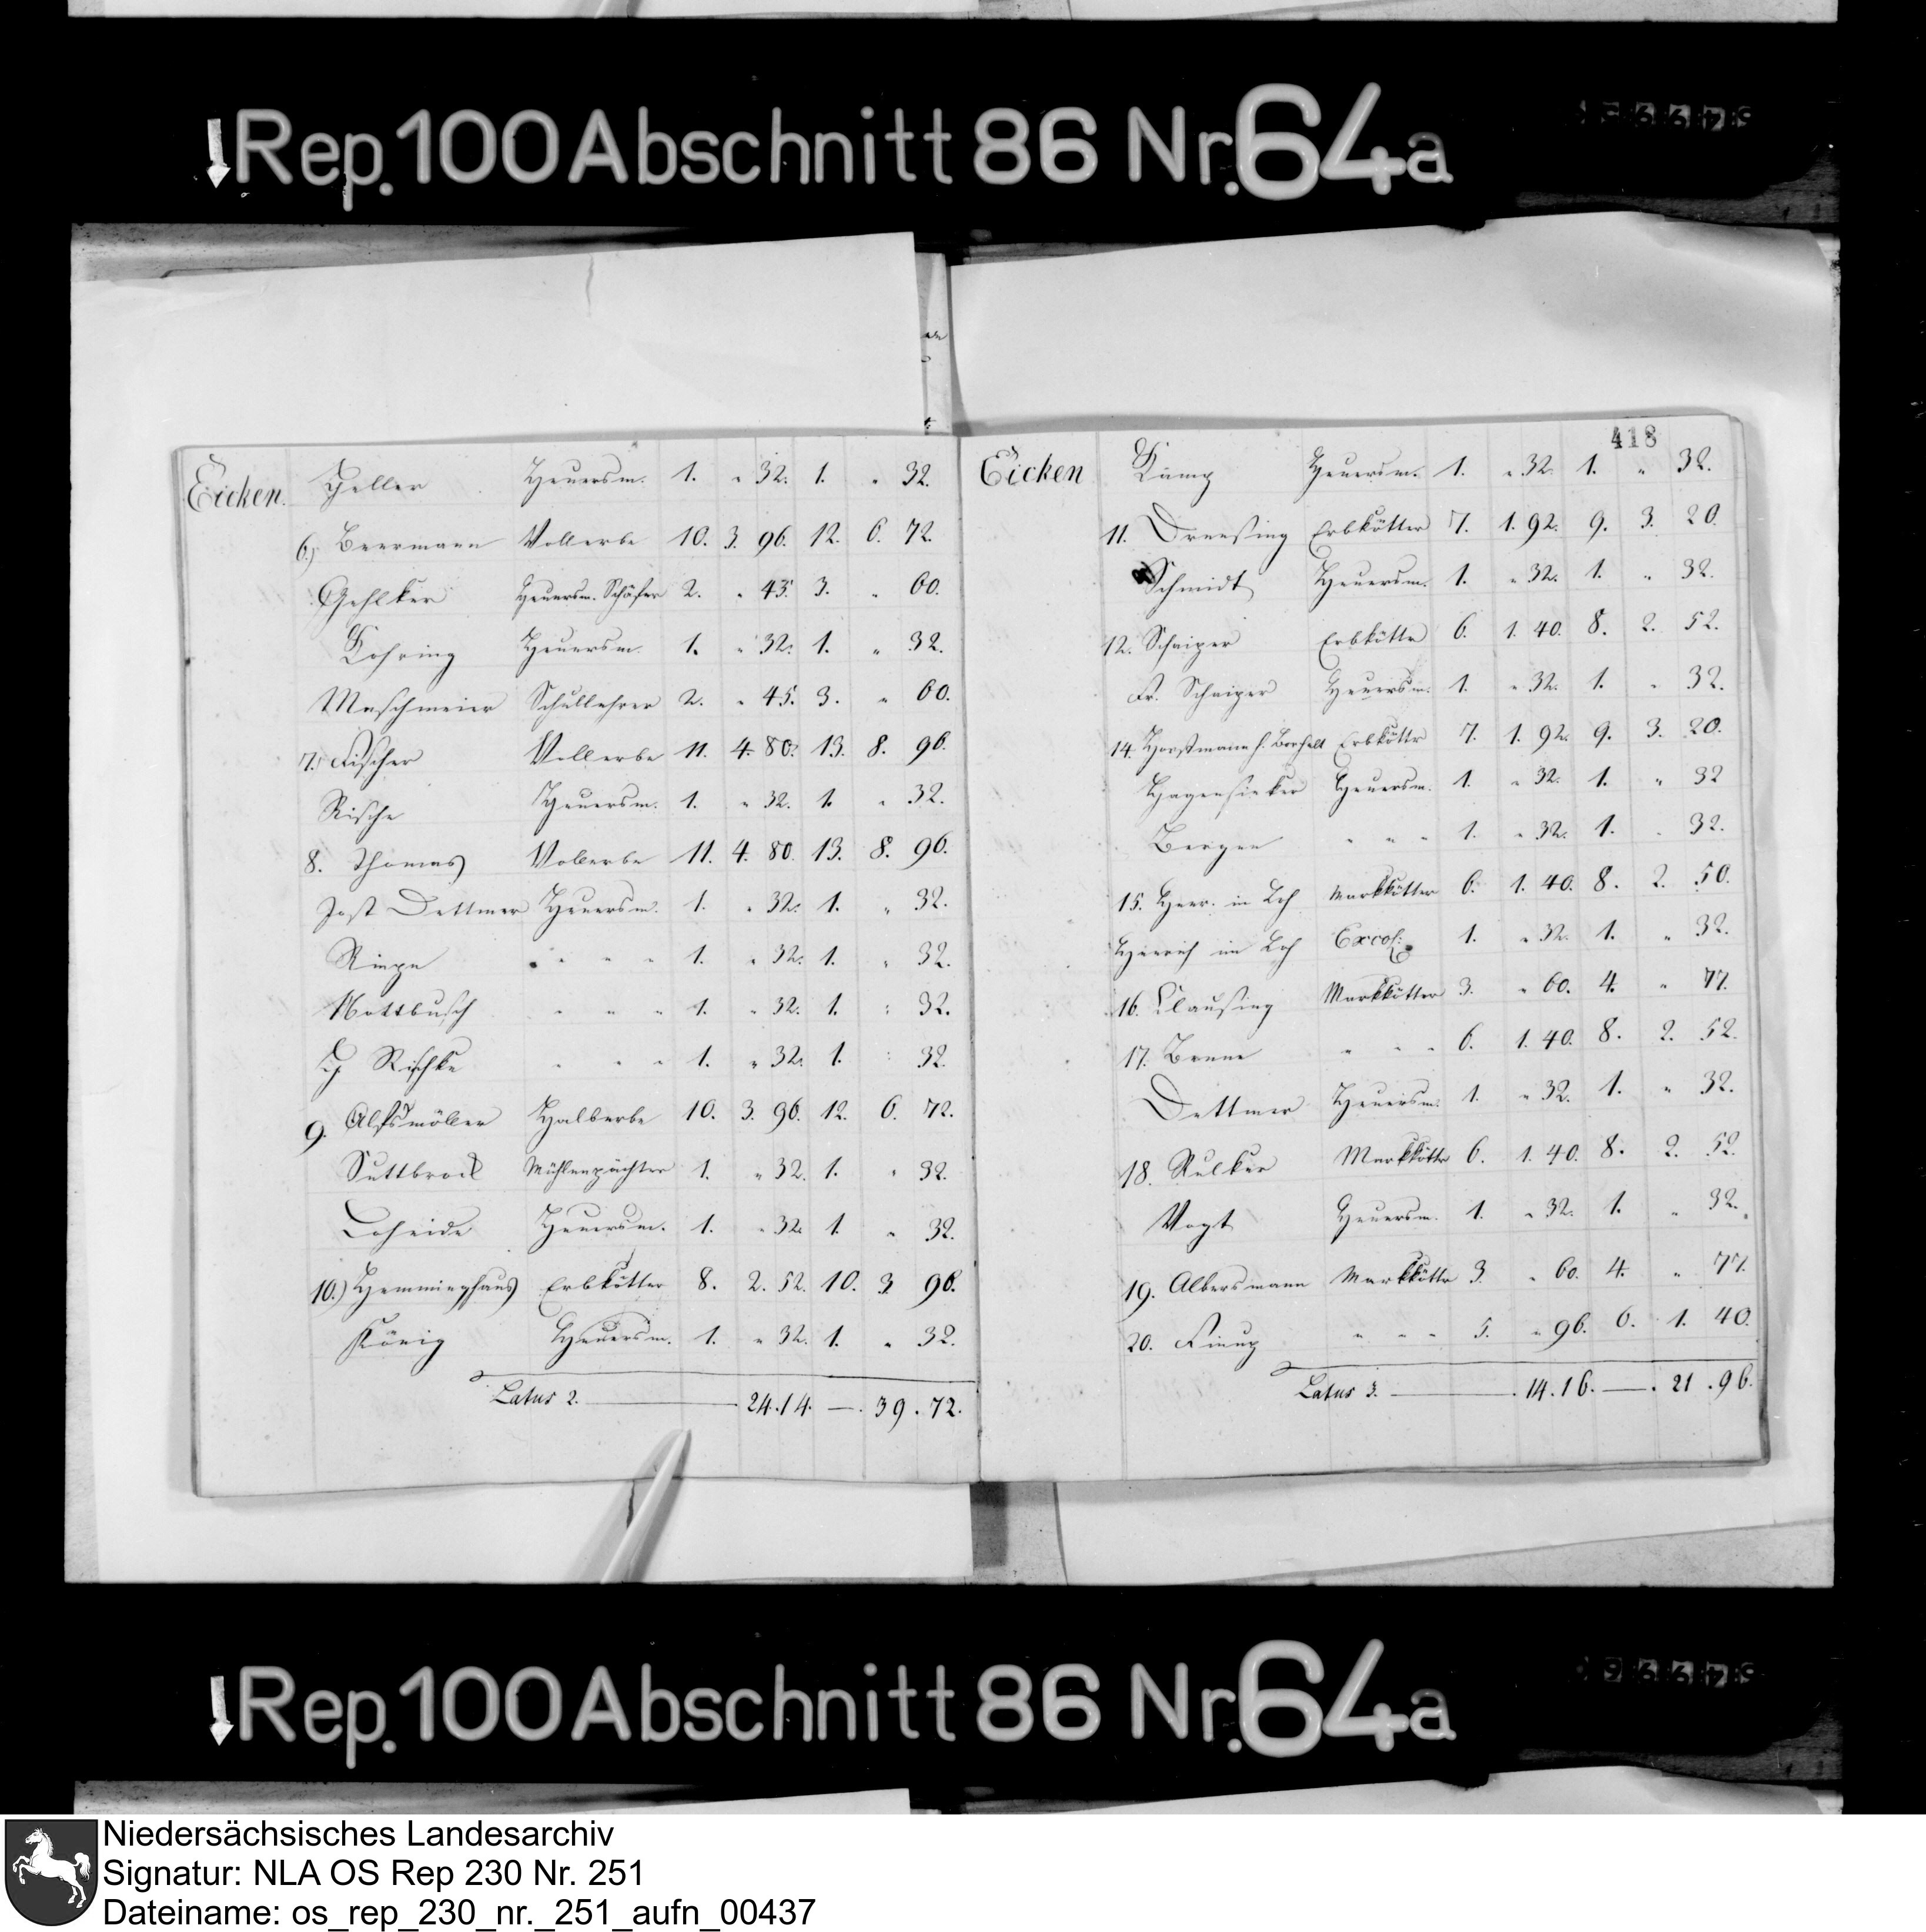 Rep. 100 Abschnitt 86 Nr. 64a
Eicken. Heller Heuersm. 1. " 32. 1. " 32.
6.) Beermann Vollerbe 10. 3. 96. 12. 6. 72.
Gehlker Heuersm. Schäfer 2. " 45. 3. " 60.
Lohring Heuersm. 1. " 32. 1. " 32.
Maschmeier Schullehrer 2. " 45. 3. " 60.
7.) Fischer Vollerbe 11. 4. 80. 13. 8. 96.
Rische Heuersm. 1. " 32. 1. " 32.
8. Thomas Vollerbe 11. 4. 80. 13. 8. 96.
Jost Dettmer Heuersm. 1. " 32. 1. " 32.
Riepe " " " 1. " 32. 1. " 32.
Nottbusch " " " 1. " 32. 1. " 32.
Rischke " " " 1. " 32. 1. " 32.
9. möller Halberbe 10. 3. 96. 12. 6. 72.
Suttbrock Mühlenpächter 1. " 32. 1. " 32.
Loheide Heuersm. 1. " 32. 1. " 32.
10.) Hemminghaus Erbkötter 8. 2. 52. 10. 3. 96.
König Heuersm. 1. " 32. 1. " 32.
Latus 2. 24. 14. — 39. 72.
418
Eicken Kump Heuersm. 1. " 32. 1. " 32.
11. Dreesing Erbkötter 7. 1. 92. 9. 3. 20.
Schmidt Heuersm. 1. " 32. 1. " 32.
12. Schaiper Erbkötter 6. 1. 40. 8. 2. 52.
Fr. Schaiper Heuersm. 1. " 32. 1. " 32.
14. Horstmann Erbkötter 7. 1. 92. 9. 3. 20.
Hagensieker Heuersm. 1. " 32. 1. " 32
Bergen " " " 1. " 32. 1. " 32.
15. Herr. in Loh Markkötter 6. 1. 40. 8. 2. 50.
Hinrich im Loh 1. " 32. 1. " 32.
16. Clausing Markkötter 3. " 60. 4. " 77.
17. Brune " " " 6. 1. 40. 8. 2. 52.
Dettmer Heuersm. 1. " 32. 1. " 32.
18. Rulker Markkötter 6. 1. 40. 8. 2. 52.
Vogt Heuersm. 1. " 32. 1. " 32.
19. Albersmann Markkötter 3. " 60. 4. " 77.
20. Finup " " " 5. " 96. 6. 1. 40.
Latus 3. 14. 16. — 21. 96.
Rep. 100 Abschnitt 86 Nr. 64a
Niedersächsisches Landesarchiv
Signatur: NLA OS Rep 230 Nr. 251
Dateiname: os_rep_230_nr._251_aufn_00437